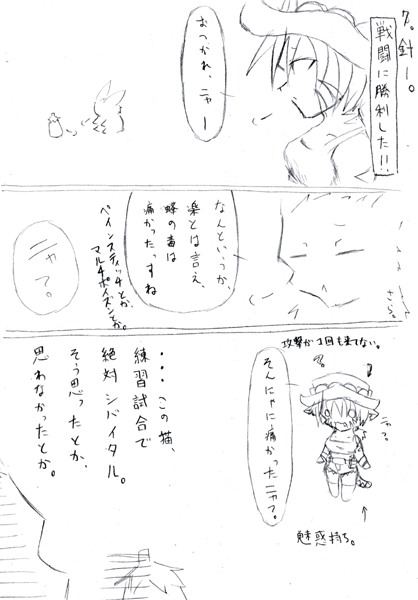 7。針一。
戦闘に勝利した!!
おつかれ、ニャー
なんといつか、
楽とは言え、
蜂の毒は
痛かったっすね
ペインスティッチとか、
マルチポイズンとか。
さらっ
ニャて。
攻撃が1回も来てない。
そんにゃに痛かったニャて。
ニャて?
魅惑持ち。
・・・この猫、
練習試合で
絶対シバイタル。
そう思ったとか、
思わなかったとか。